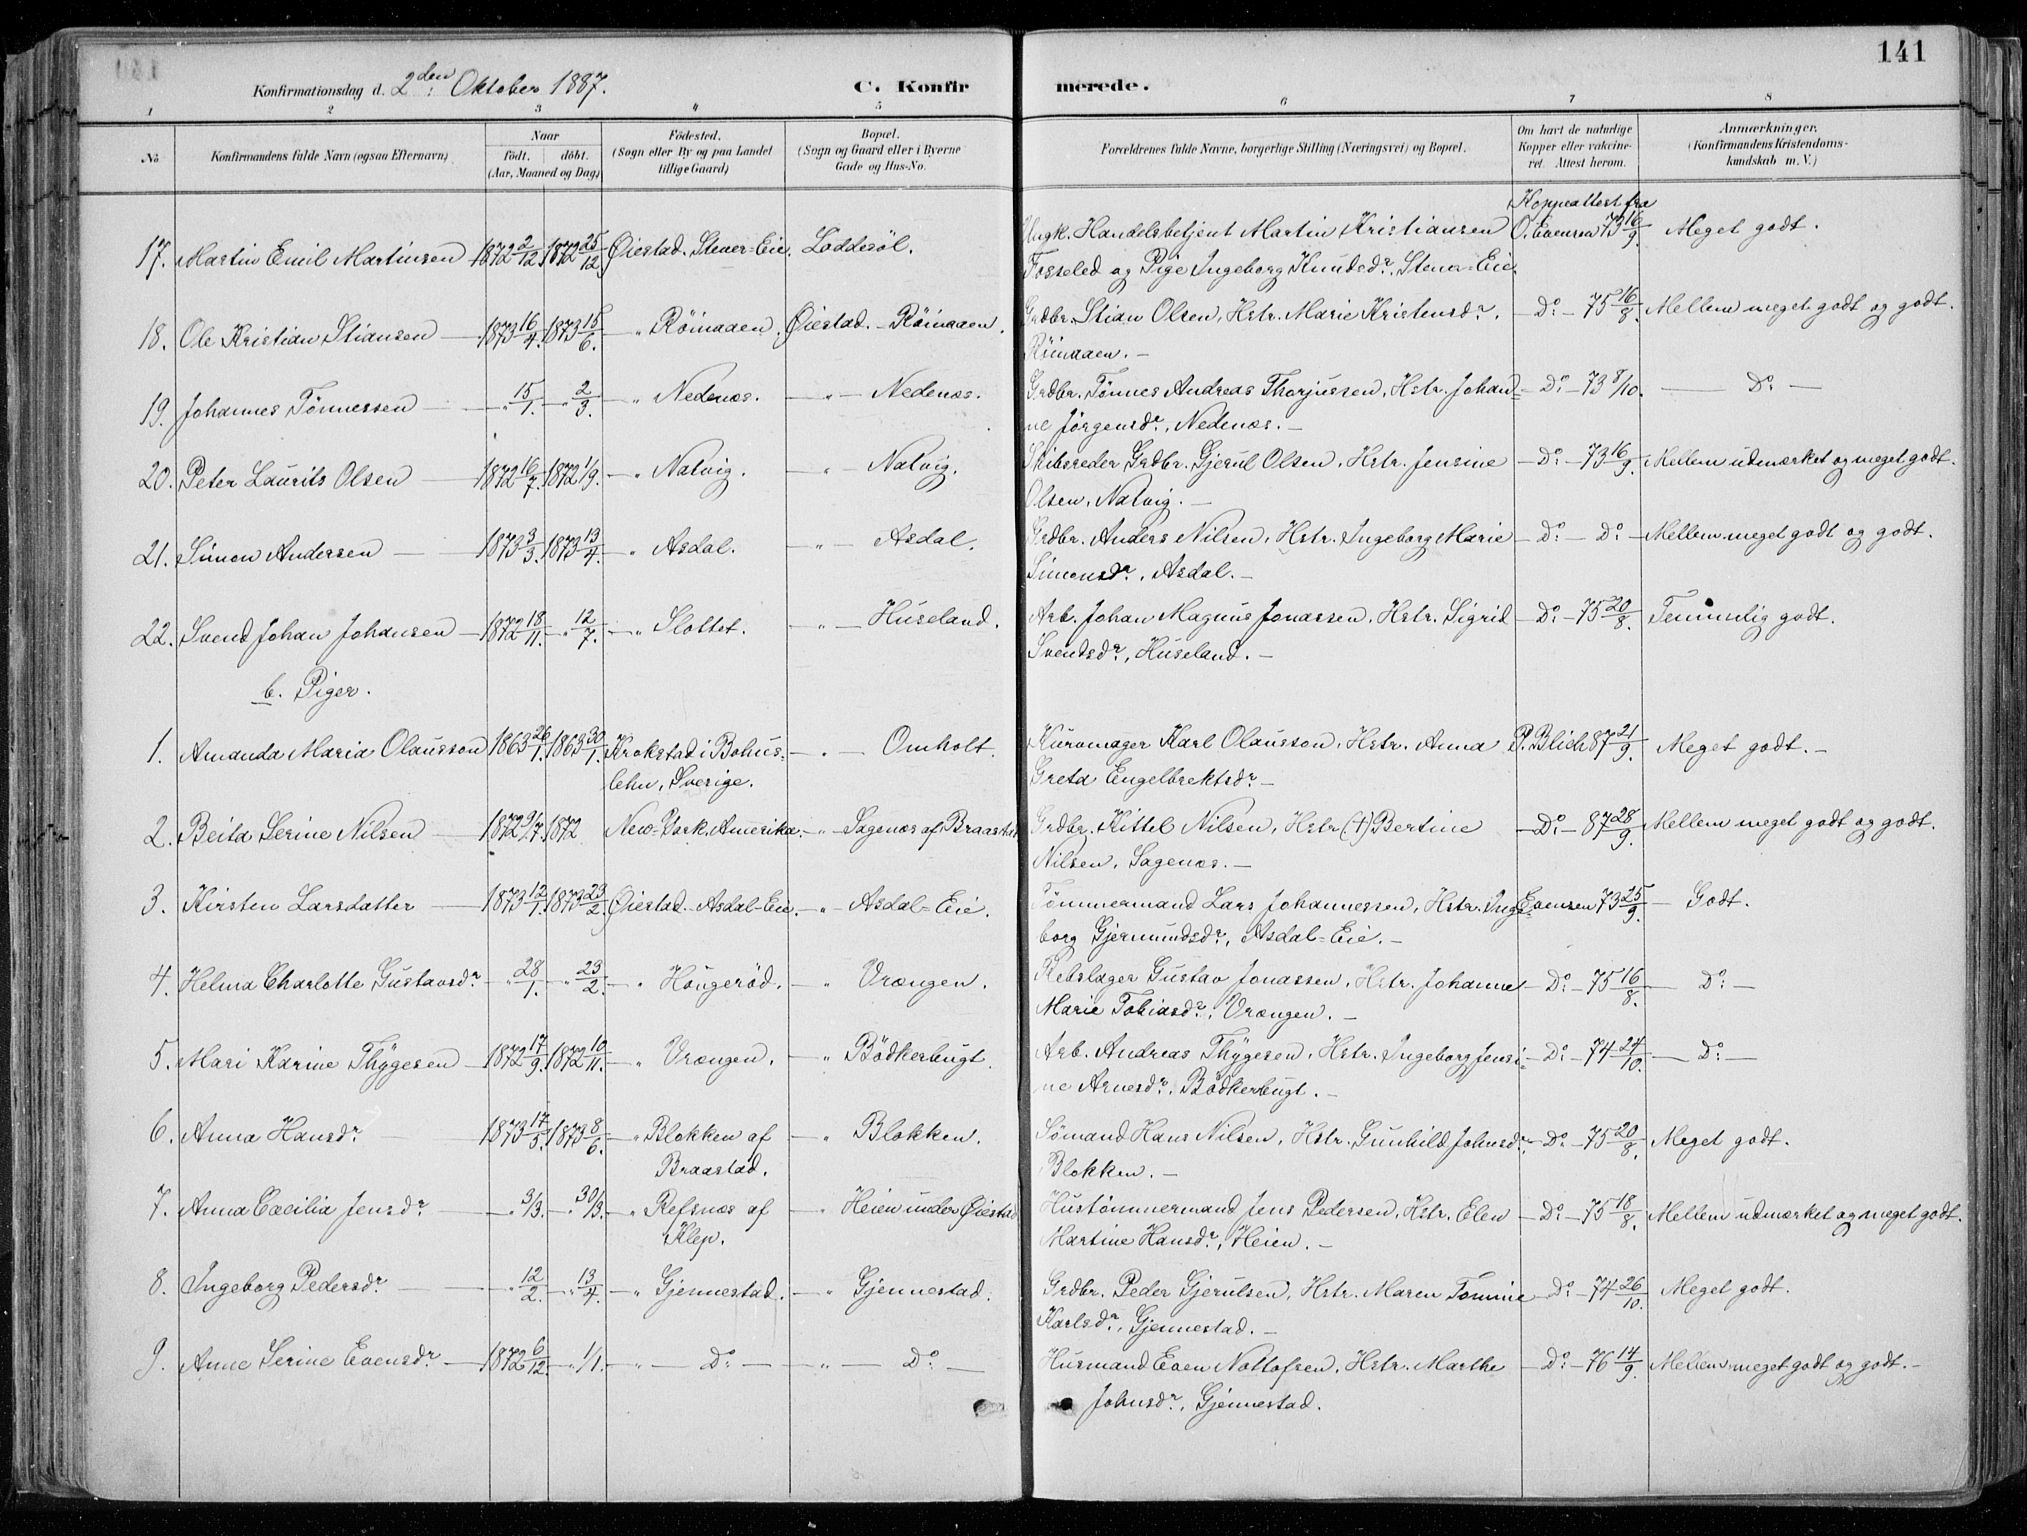 141
Konfirmationsdag d. 2den Oktober 1887. C. Konfirmerede.
1 2 3 " 5 6 7 8
No Konfirmandens fulde Navn (ogsaa Efternavn) Naar født. døbt. (Aar, Maaned og Dag) Fødested. (Sogn eller By og paa Landet tillige Gaard) Bopæl. (Sogn og Gaard eller i Byerne Gade og Hus-No. Forældrenes fulde Navne, borgerlige Stilling (Næringsvei) og Bopæl. Om havt de naturlige Kopper eller vakcineret. Attest herom. Anmærkninger. (Konfirmandens Kristendomskundskab m. V.)
Koppeattest fra
17. Martin Emil Martinsen 1872 2/12 1872 25/12 Øiestad. Stener-Eie. Loddesöl. Ungk. Handelsbetjent Martin Kristiansen O. Evensen 73 16/9. Meget godt.
Fosseled og Pige Ingeborg Knudsdr., Stener-Eie.
18. Ole Kristian Stiansen 1873 16/4. 1873 15/6. " Röinaaen. Øiestad. - Röinaaen. Grdbr. Stian Olsen, Hstr. Marie Kristensdr. - Do - 75 16/8. Mellem meget godt og godt.
Röinaaen. -
19. Johannes Tönnessen " 15/1. " 2/3. " Nedenæs. - " - Nedenæs. Grdbr. Tönnes Andreas Thorjussen, Hstr. Johan- - Do - 73 8/10. - Do -
ne Jörgensdr., Nedenæs. -
20. Peter Laurits Olsen 1872 16/7. 1872 1/9. " Natvig. " - Natvig. Skibsreder Grdbr. Gjerul Olsen, Hstr. Jensine - Do - 73 16/9. Mellem udmærket og meget godt.
Olsen, Natvig. -
21. Simon Andersen 1873 3/3. 1873 13/4. " Asdal. - " - Asdal. Grdbr. Anders Nilsen, Hstr. Ingeborg Marie - Do - Do - Mellem meget godt og godt.
Simonsdr., Asdal. -
22. Svend Johan Johansen 1872 18/11. " 12/7. - " - Slottet. " - Huseland. Arb. Johan Magnus Jonassen, Hstr. Sigrid - Do - 75 20/8. Temmelig godt.
Svendsdr., Huseland. -
b. Piger.
1. Amanda Maria Olausson 1863 26/1. 1863 30/1. Krokstad i Bohus- - " - Omholt. Kurvmager Karl Olausson, Hstr. Anna P. Blich 87 21/9. Meget godt. -
lehn, Sverige. Greta Engelbrektsdr. -
2. Beita Serine Nilsen 1872 9/7. 1872 New-York, Amerika. - " - Sagenæs af Braastad Grdbr. Kittel Nilsen, Hstr. (†) Bertine - Do - 87 28/9. Mellem meget godt og godt.
Nilsen, Sagenæs. -
3. Kirsten Larsdatter 1873 12/1. 1873 23/2. Øiestad. Asdal-Eie. - " Asdal-Eie. Tömmermand Lars Johannessen, Hstr. Inge- Evensen 73 25/9. - Godt.
borg Gjermundsdr., Asdal-Eie. -
4. Helma Charlotte Gustavsdr. " 28/1. " 23/2. " Höngeröd. - " Vrængen. Rebslager Gustav Jonassen, Hstr. Johanne - Do - 75 16/8. - Do -
Marie Tobiasdr., Vrængen. -
5. Mari Karine Thygesen 1872 17/9. 1872 10/11. " Vrængen. - " Bödkerbugt. Arb. Andreas Thygesen, Hstr. Ingeborg Jensi- - Do - 74 24/10. - Do -
ne Arnesdr., Bödkerbugt. -
6. Anna Hansdr. 1873 17/5. 1873 8/6. - " Blokken af - " Blokken. Sömand Hans Nilsen, Hstr. Gunhild Johnsdr., - Do - 75 20/8. Meget godt.
Braastad. Blokken. -
7. Anna Cæcilia Jensdr. " 3/3. " 30/3. " Refsnæs af - " Heien under Øiestad Hustömmermand Jens Pedersen, Hstr. Elen - Do - 75 18/8. Mellem udmærket og meget godt.
Klep. Martine Hansdr., Heien. -
8. Ingeborg Pedersdr. " 12/2. " 13/4. - " Gjennestad. - " Gjennestad. Grdbr. Peder Gjerulsen, Hstr. Maren Tomine - Do - 74 26/10. Meget godt.
Karlsdr., Gjennestad. -
9. Anne Serine Evensdr. - 1872 6/12. " 1/1. " - Do - - " - Do - Husmand Even Nottofsen, Hstr. Marthe - Do - 76 14/9. Mellem meget godt og godt. -
Johnsdr., Gjennestad.